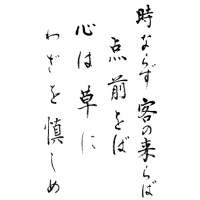 時ならず客の来らば
点前をば
心は草に
わざを慎しめ